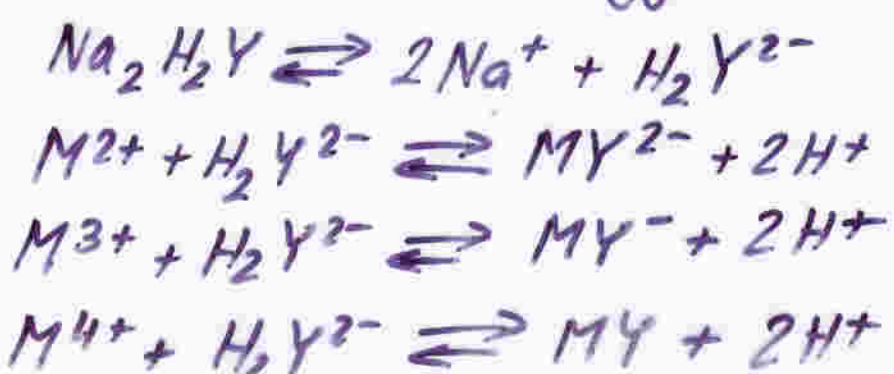 Na₂H₂Y ⇌ 2Na⁺ + H₂Y²⁻
M²⁺ + H₂Y²⁻ ⇌ MY²⁻ + 2H⁺
M³⁺ + H₂Y²⁻ ⇌ MY⁻ + 2H⁺
M⁴⁺ + H₂Y²⁻ ⇌ MY + 2H⁺